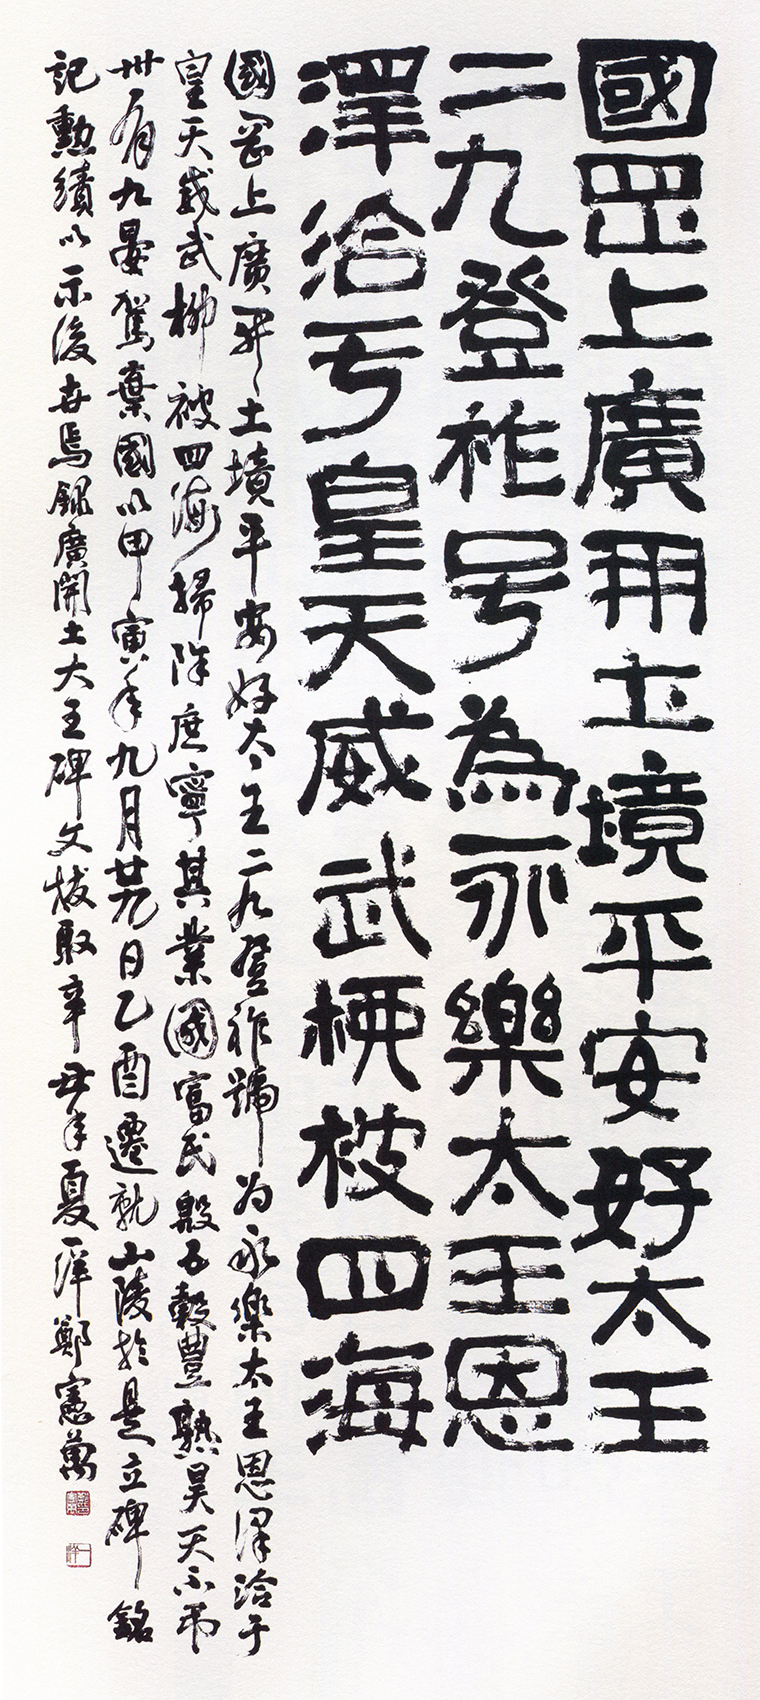 國罡上廣開土境平安好太王
二九登祚号為永樂太王恩
澤洽亏皇天威武柳被四海
國罡上廣開土境平安好太王二九登祚號为永樂太王恩澤洽于
皇天威武柳被四海掃除庶寧其業國富民殷五穀豊熟昊天不弔
卅有九晏駕棄國以甲寅年九月廿九日乙酉遷就山陵於是立碑銘
記勳績以示後世焉錄廣開土大王碑文拔取辛丑年夏一洋鄭憲萬